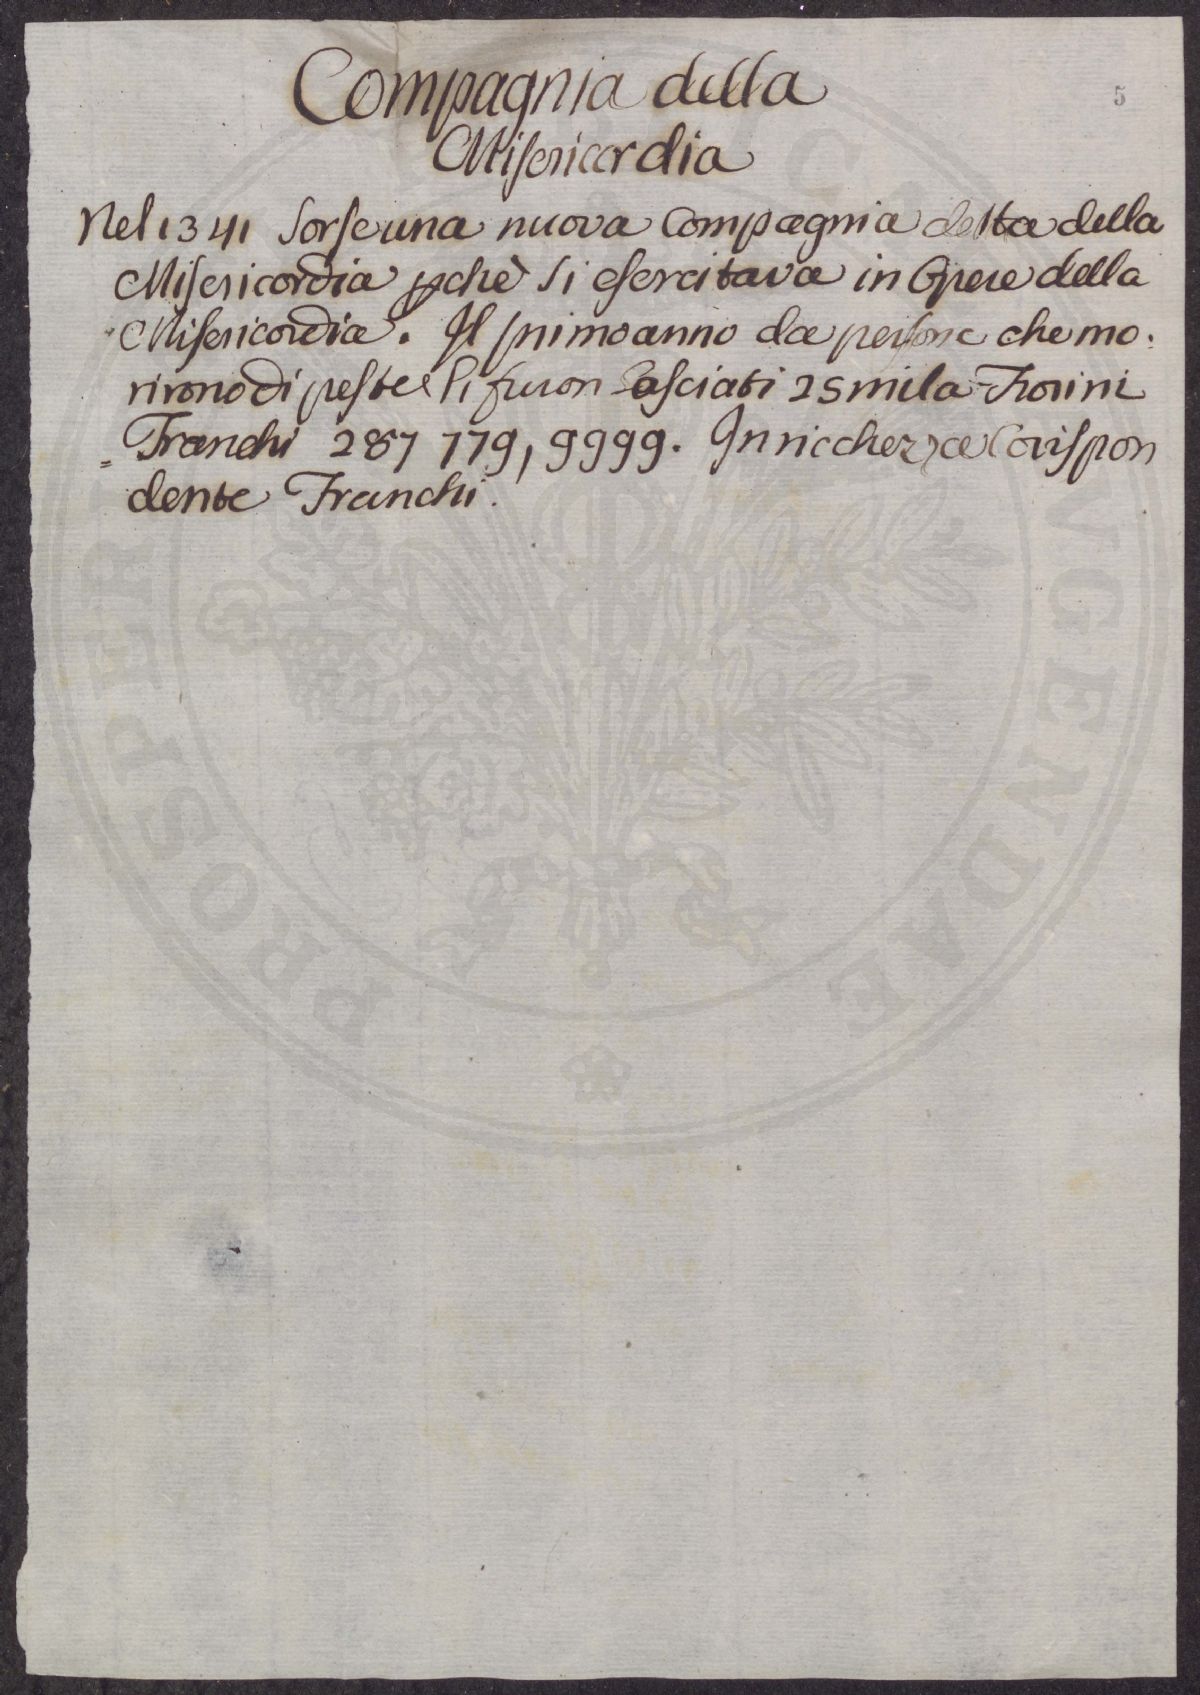 5
Compagnia della
Misericordia
Nel 1341 Sorse una nuova Compagnia detta della
Misericordia pche Si esercitava in Opere della
Misericordia. Il primo anno da persone che mo.
rirono di peste Li furon Lasciati 25 mila Fiorini
= Franchi 287 779, 9999. In ricchezza Corispon
dente Franchi.
PROSPER
VGENDAE